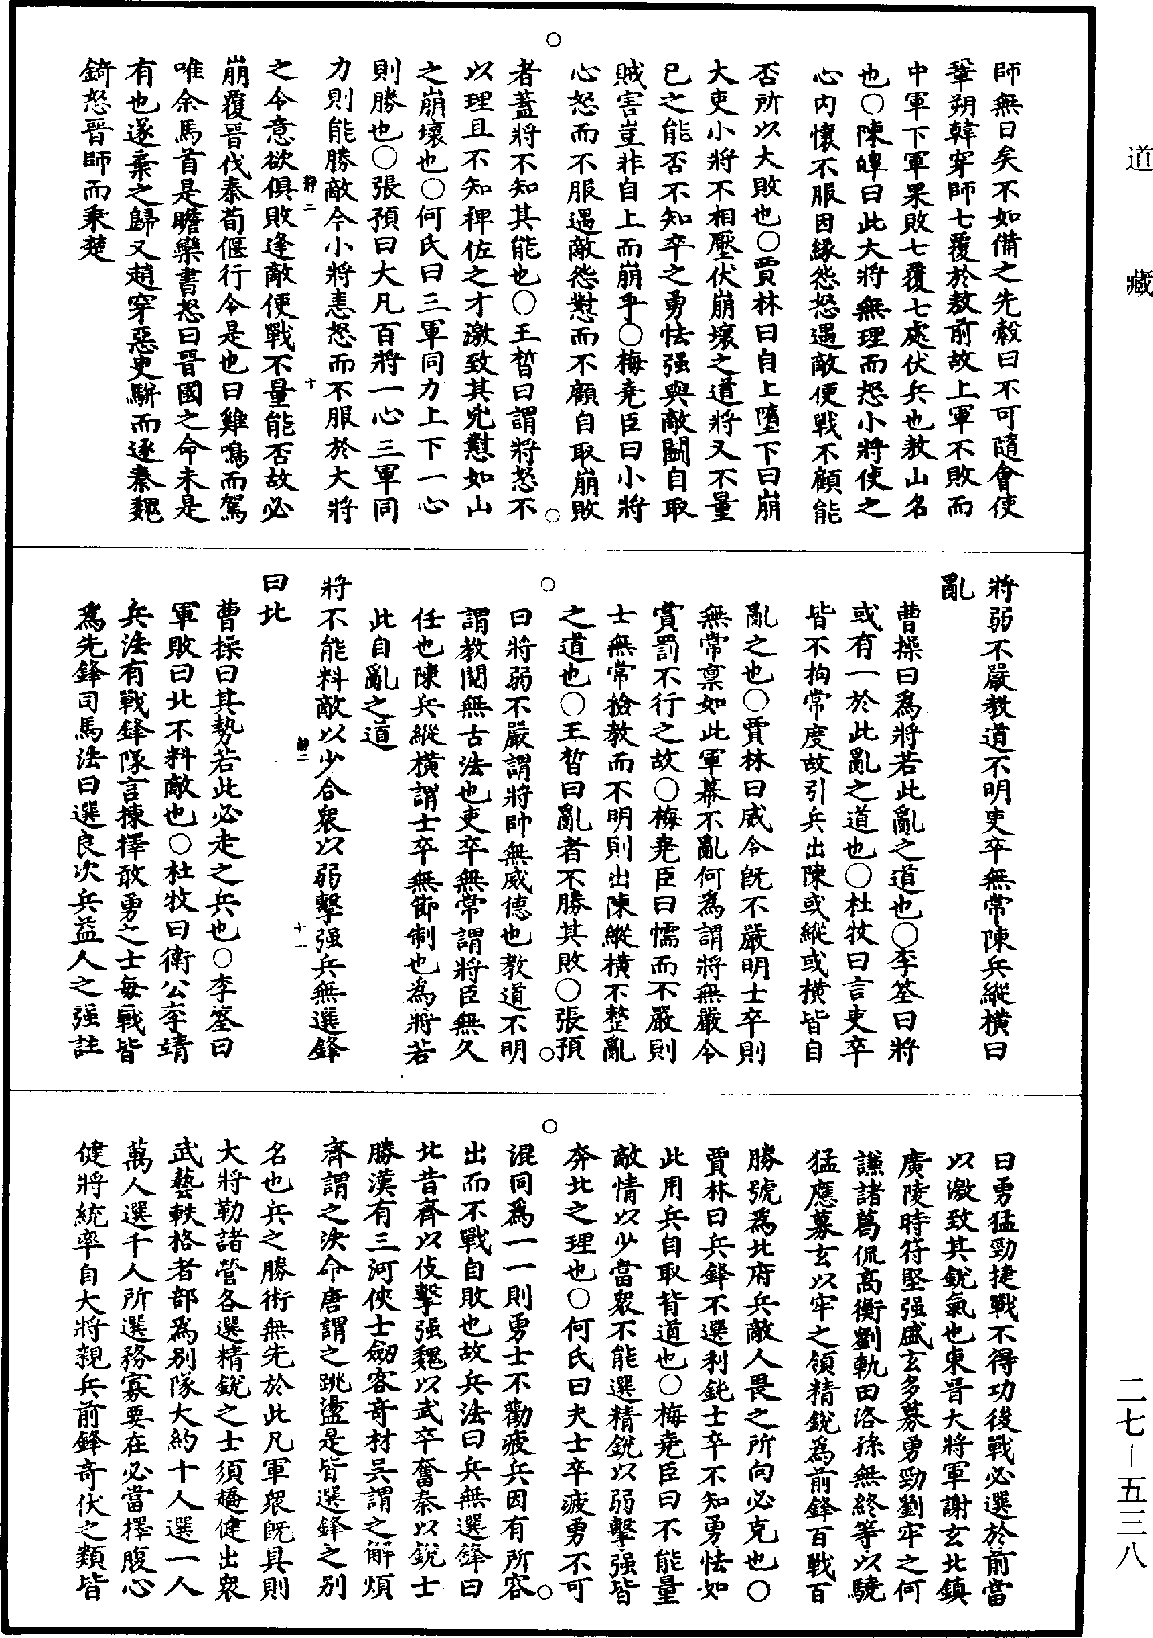 道藏
師無日矣不如備之先縠曰不可隨會使
鞏朔韓穿師七覆於敖前故上軍不敗而
中軍下軍果敗七覆七處伏兵也敖山名
也○陳皥曰此大將無理而怒小將使之
心內懷不服因緣怨怒遇敵便戰不顧能
否所以大敗也○賈林曰自上墮下曰崩
大吏小將不相壓伏崩壞之道將又不量
己之能否不知卒之勇怯强與敵鬪自取
賊害豈非自上而崩乎○梅堯臣曰小將
心怒而不服遇敵怨懟而不顧自取崩敗
者蓋將不知其能也○王晳曰謂將怒不
以理且不知裨佐之才激致其兇懟如山
之崩壞也○何氏曰三軍同力上下一心
則勝也○張預曰大凡百將一心三軍同
力則能勝敵今小將恚怒而不服於大將
靜二 十
之令意欲俱敗逢敵便戰不量能否故必
崩覆晉伐秦荀偃行令是也曰雞鳴而駕
唯余馬首是瞻欒書怒曰晉國之命未是
有也遂棄之歸又趙穿惡臾駢而逐秦魏
錡怒晉師而乘楚
將弱不嚴教道不明吏卒無常陳兵縱橫曰
亂
曹操曰為將若此亂之道也○李筌曰將
或有一於此亂之道也○杜牧曰言吏卒
皆不拘常度故引兵出陳或縱或橫皆自
亂之也○賈林曰威令旣不嚴明士卒則
無常稟如此軍幕不亂何為謂將無嚴令
賞罰不行之故○梅堯臣曰懦而不嚴則
士無常撿教而不明則出陳縱橫不整亂
之道也○王晳曰亂者不勝其敗○張預
曰將弱不嚴謂將帥無威德也教道不明
謂教閱無古法也吏卒無常謂將臣無久
任也陳兵縱橫謂士卒無節制也為將若
此自亂之道
將不能料敵以少合衆以弱擊强兵無選鋒
靜二 十一
曰北
曹操曰其勢若此必走之兵也○李筌曰
軍敗曰北不料敵也○杜牧曰衛公李靖
兵法有戰鋒隊言揀擇敢勇之士每戰皆
為先鋒司馬法曰選良次兵益人之强註
曰勇猛勁捷戰不得功後戰必選於前當
以激致其銳氣也東晉大將軍謝玄北鎮
廣陵時苻堅强盛玄多募勇勁劉牢之何
謙諸葛侃高衡劉軌田洛孫無終等以驍
猛應募玄以牢之領精銳為前鋒百戰百
勝號為北府兵敵人畏之所向必克也○
賈林曰兵鋒不選利鈍士卒不知勇怯如
此用兵自取背道也○梅堯臣曰不能量
敵情以少當衆不能選精銳以弱擊强皆
奔北之理也○何氏曰夫士卒疲勇不可
混同為一一則勇士不勸疲兵因有所容
出而不戰自敗也故兵法曰兵無選鋒曰
北昔齊以伎擊强魏以武卒奮秦以銳士
勝漢有三河俠士劒客奇材吳謂之解煩
齊謂之決命唐謂之跳盪是皆選鋒之別
名也兵之勝術無先於此凡軍衆旣具則
大將勒諸營各選精銳之士須趫健出衆
武藝軼格者部為別隊大約十人選一人
萬人選千人所選務寡要在必當擇腹心
健將統率自大將親兵前鋒奇伏之類皆
二七-五三八